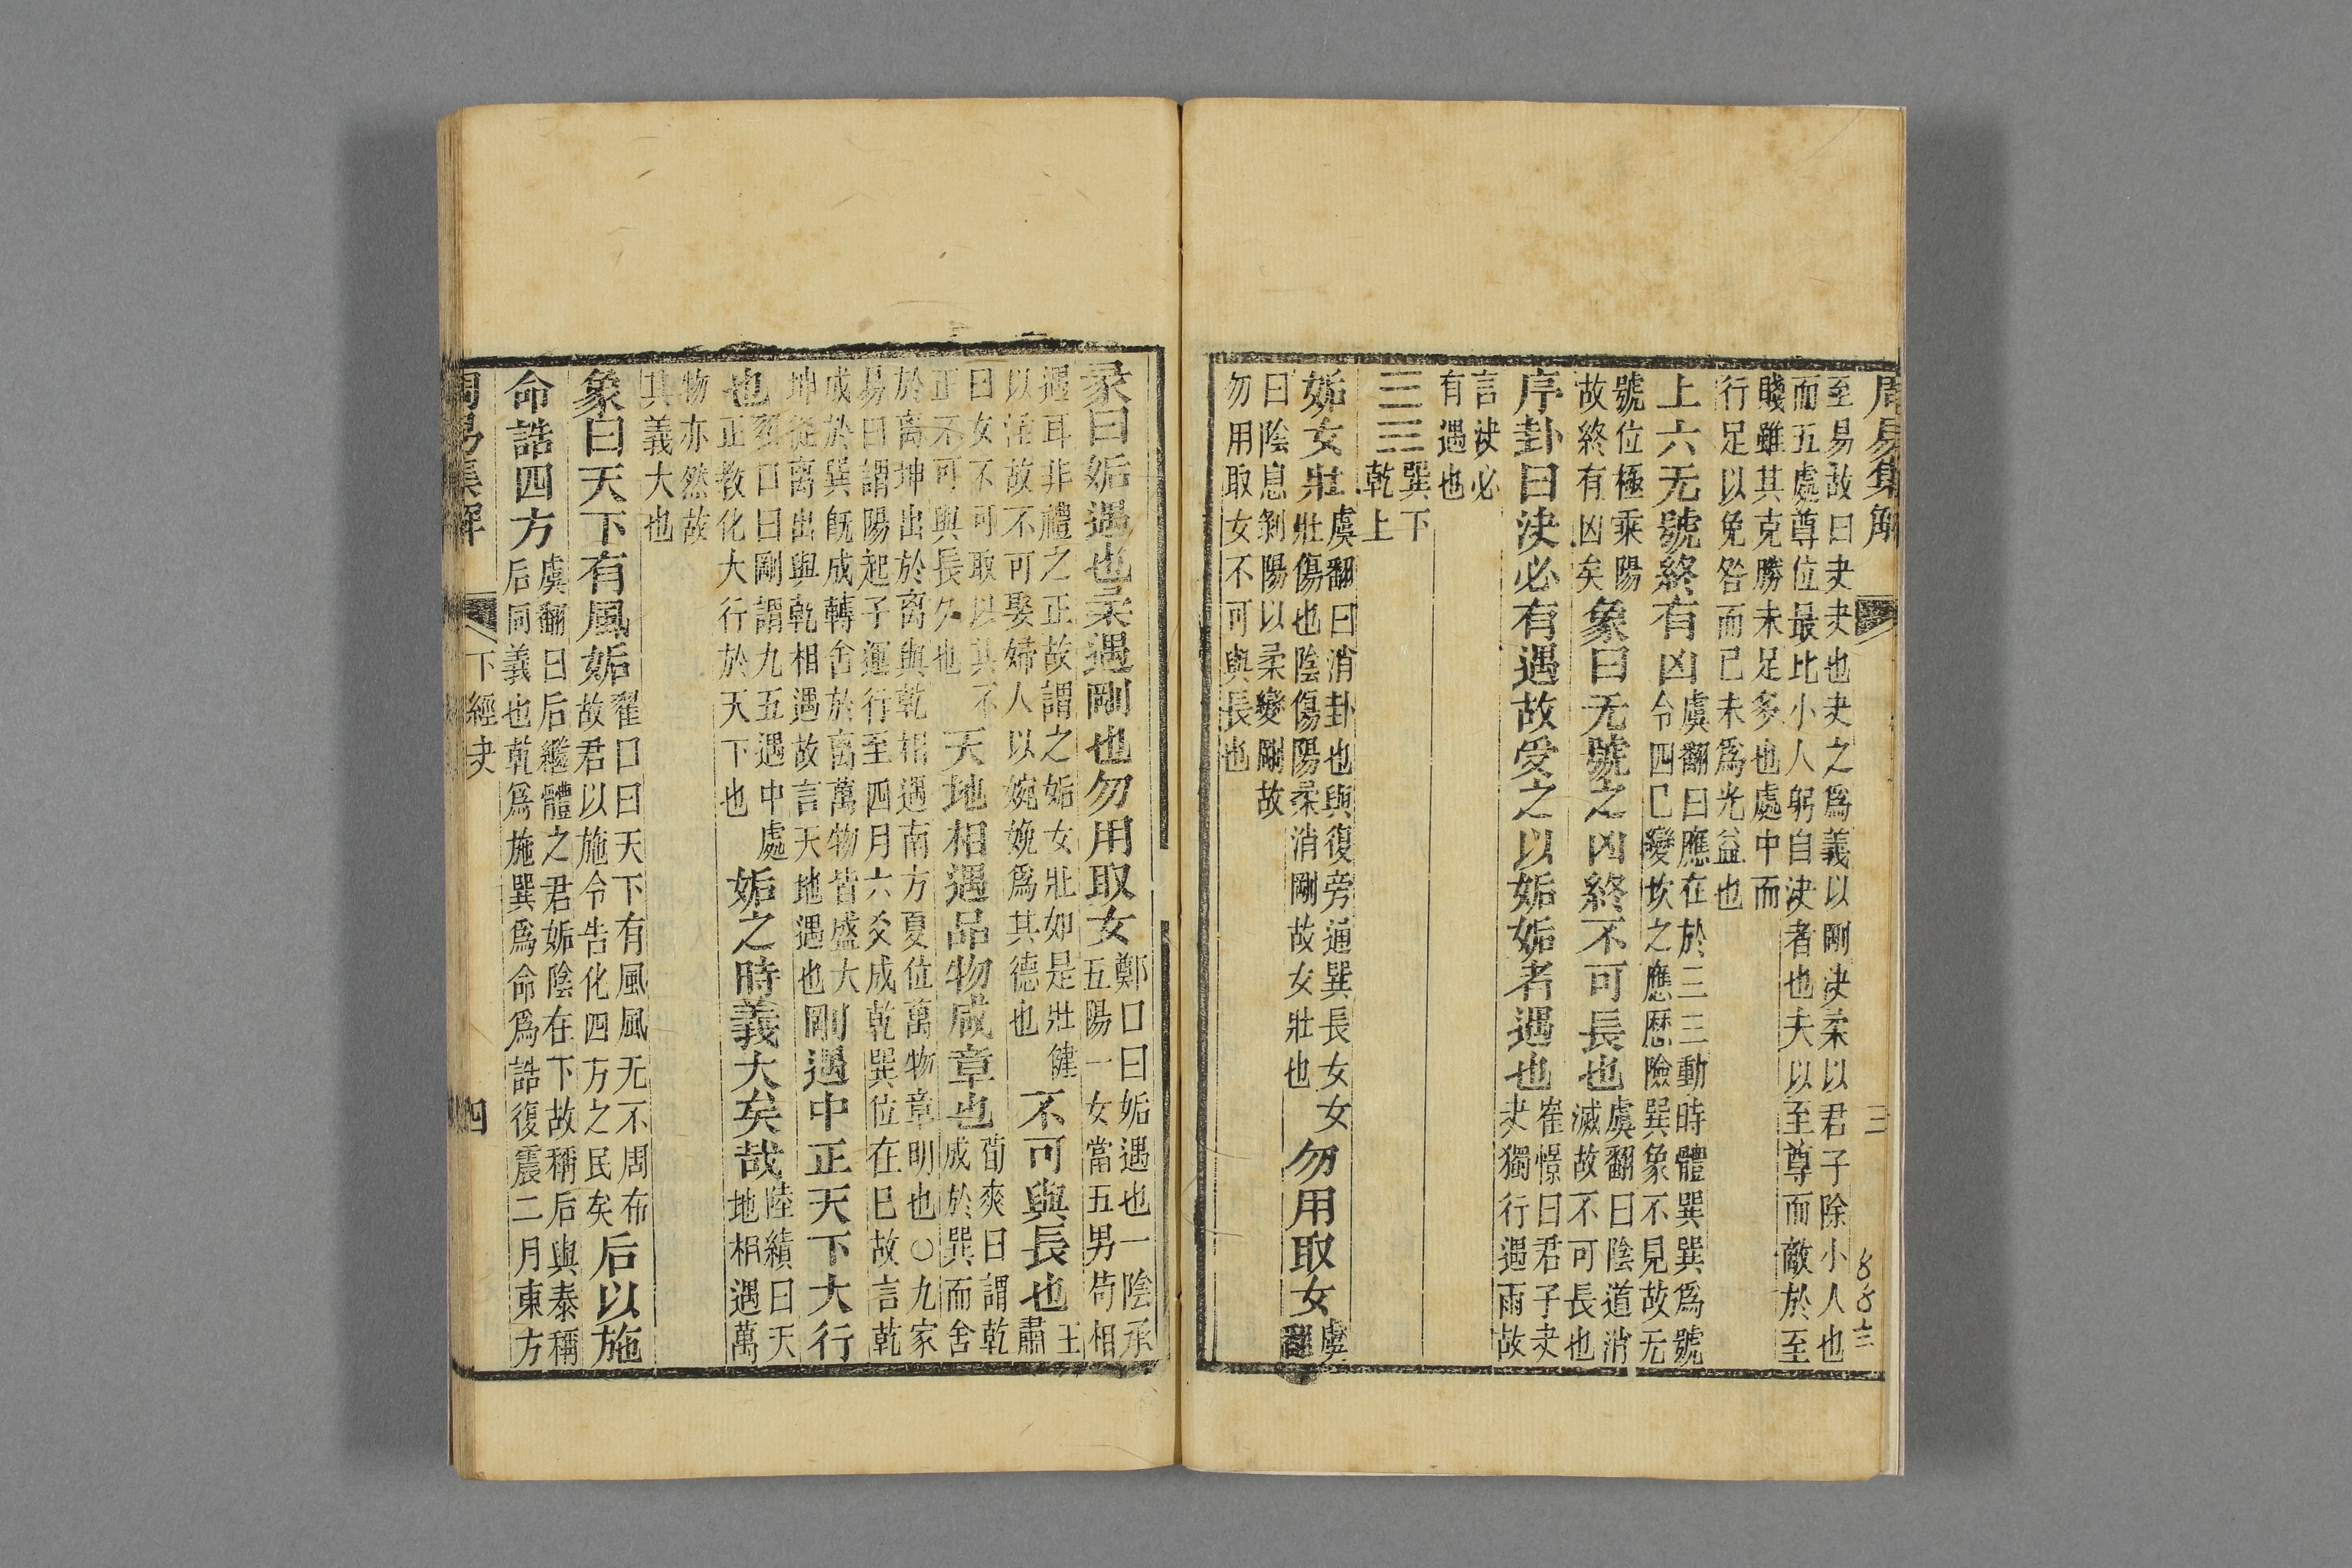 周易集解
三
至易故曰夬夬也夬之爲義以剛決柔以君子除小人也
而五處尊位最比小人躬自決者也夫以至尊而敵於至
賤雖其克勝未足多也處中而
行足以免咎而已未爲光益也
上六无號終有凶
虞翻曰應在於三三動時體巽巽爲號
令四巳變坎之應歴險巽象不見故无
號位極乘陽
故終有凶矣
象曰无號之凶終不可長也
虞翻曰陰道消
滅故不可長也
序卦曰決必有遇故受之以姤姤者遇也
崔憬曰君子夬
夬獨行遇雨故
言決必
有遇也
巽下
乾上
姤女壯
虞翻曰消卦也與復旁通巽長女女
壯傷也陰傷陽柔消剛故女壯也
勿用取女
虞
翻
曰陰息剝陽以柔變剛故
勿用取女不可與長也
彖曰姤遇也柔遇剛也勿用取女
鄭口曰姤遇也一陰承
五陽一女當五男苟相
遇耳非禮之正故謂之姤女壯如是壯健
以淫故不可娶婦人以婉娩爲其德也
不可與長也
王
肅
曰女不可取以其不
正不可與長久也
天地相遇品物咸章也
荀爽曰謂乾
成於巽而舍
於离坤出於离與乾相遇南方夏位萬物章明也○九家
易曰謂陽起子運行至四月六爻成乾巽位在巳故言乾
成於巽旣成轉舍於离萬物皆盛大
坤從离出與乾相遇故言天地遇也
剛遇中正天下大行
也
翟口曰剛謂九五遇中處
正教化大行於天下也
姤之時義大矣哉
陸績曰天
地相遇萬
物亦然故
其義大也
象曰天下有風姤
翟口曰天下有風風无不周布
故君以施令告化四方之民矣
后以施
命誥四方
虞翻曰后繼體之君姤陰在下故稱后與泰稱
后同義也乾爲施巽爲命爲誥復震二月東方
周易集解
下經夬
四